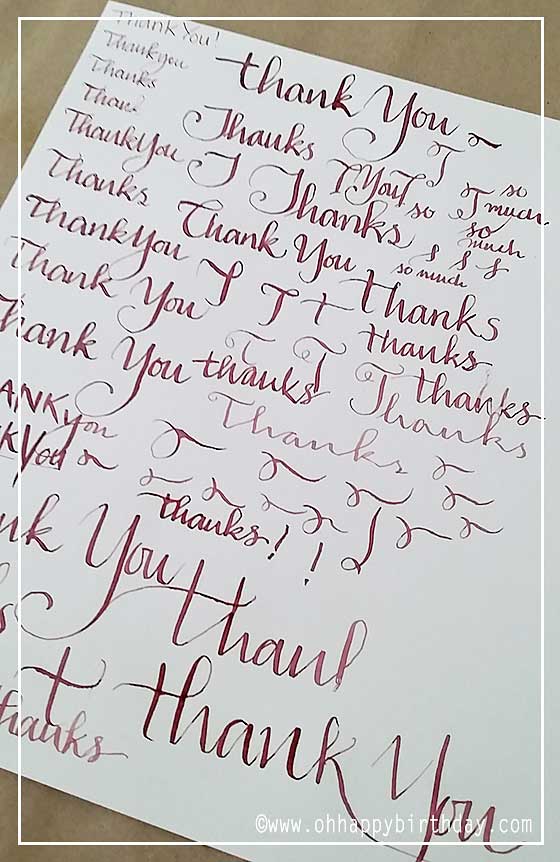 Thank You!
Thank you
thank You
Thanks
Than
Thanks
T
T YOU T
so
T much
Thank You
T
Thanks
so
so
much
Thanks
Thank You
so much
Thank You
T T t
thanks
Thank You
thanks
Thank You
thanks
T T Thanks
thanks
Thanks
ANK you
K You
thanks! !
nk You
thanl
t thank You
thanks
©www.ohhappybirthday.com